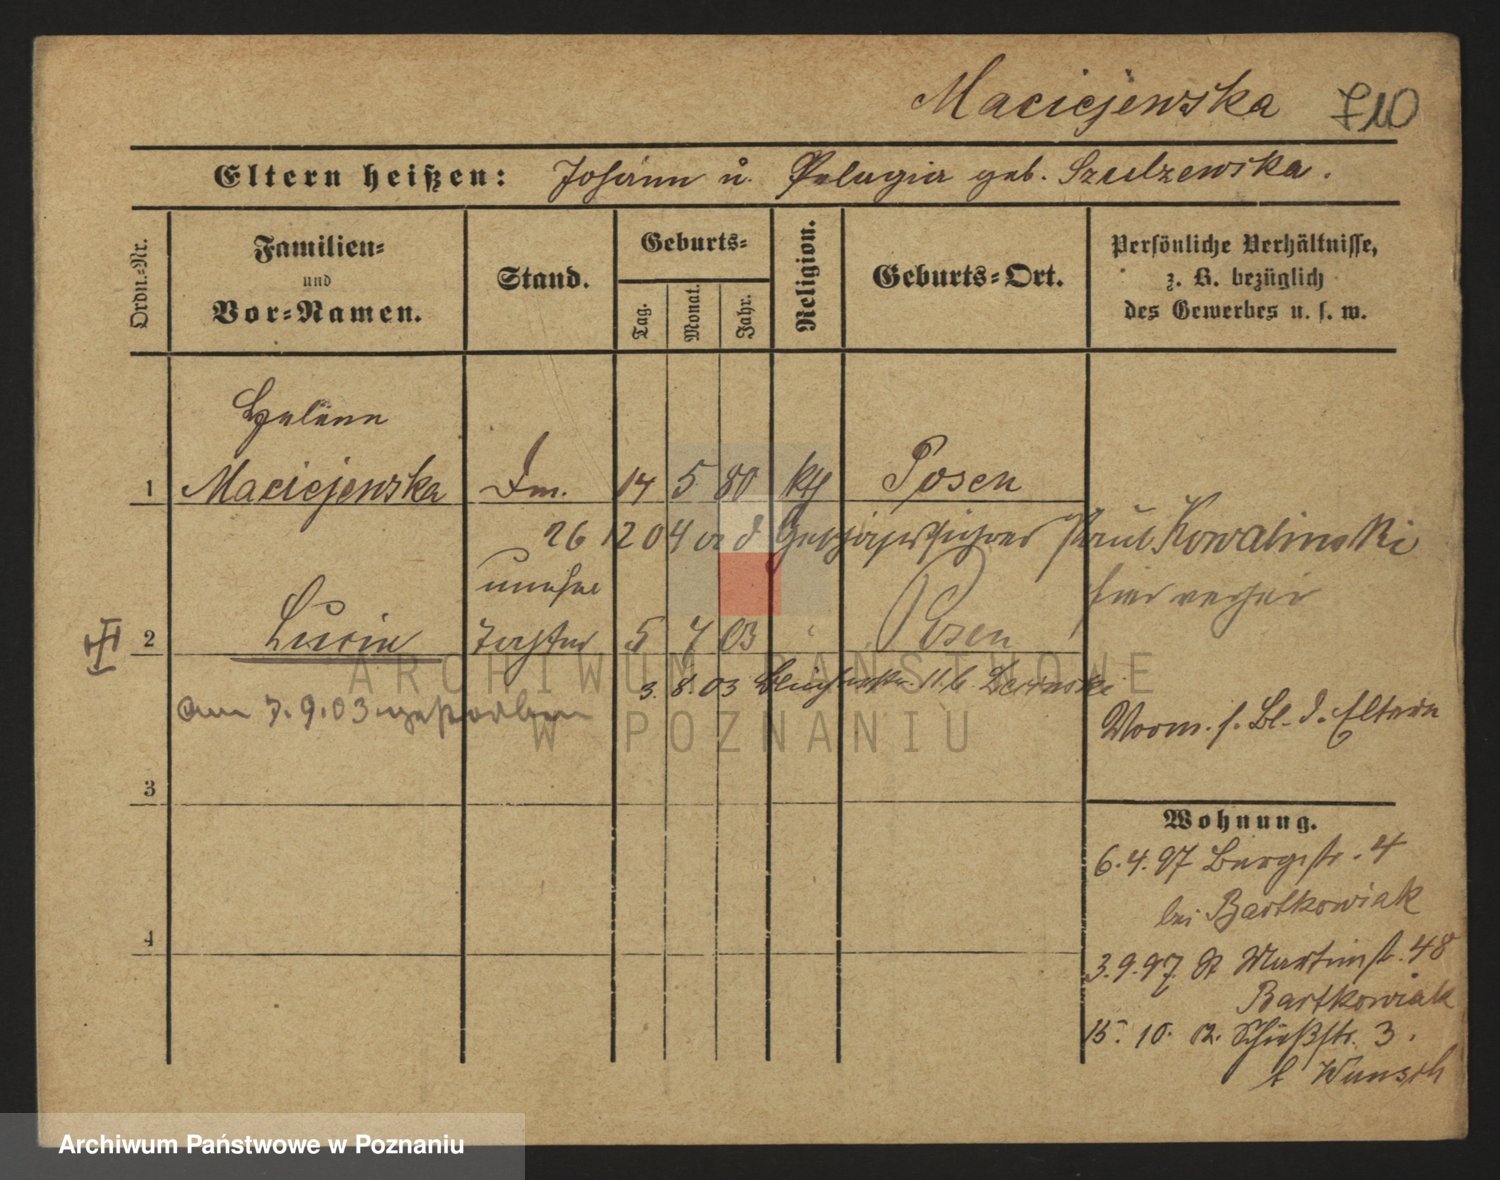 Maciejewska 710
Eltern heißen: Johann u. Pelagia geb. Szulzewska.
Ordn.-Nr.
Familien-
und
Vor-Namen.
Stand.
Geburts-
Tag.
Monat.
Jahr.
Religion.
Geburts-Ort.
Persönliche Verhältnisse,
z. B. bezüglich
des Gewerbes u. s. w.
Helene
1 Maciejewska 14 5 80 kth Posen
26 12 04 Paul Kowalinski
unehel
2 Lucie Tochter 5 7 03 " Posen
3. 8. 03
am 7.9.03 gestorben
Vorm. s. Bl. d. Eltern
3
4
Wohnung.
6.4.97 Bergstr. 4
bei Bartkowiak
3.9.97 St Martinstr. 48
Bartkowiak
15. 10. 02. Schießstr. 3.
b Wunsch
ARCHIWUM PAŃSTWOWE
W POZNANIU
Archiwum Państwowe w Poznaniu